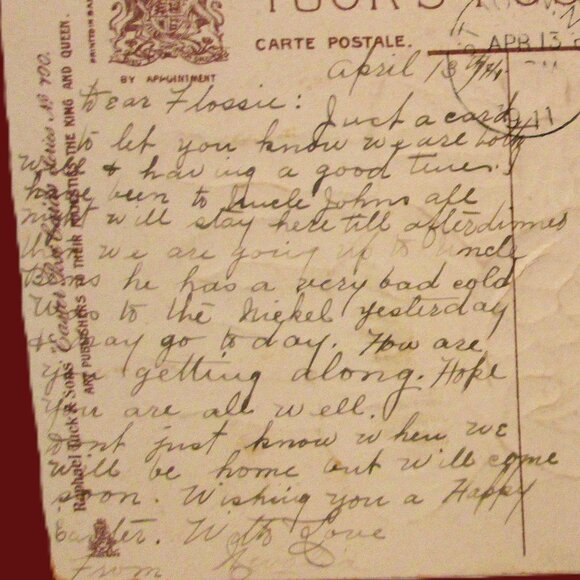 TUCK'S POST
PRINTED IN
BY APPOINTMENT
CARTE POSTALE.
APR 13
1911
Raphael Tuck & Sons "Easter Post Cards Series No 700.
ART PUBLISHERS TO THEIR MAJESTIES THE KING AND QUEEN.
April 13
Dear Flossie:
Just a card
to let you know we are both
well & having a good time.
have been to Uncle Johns all
night will stay here till afterdinner
then we are going up to Uncle
he has a very bad cold
Was to the Nickel yesterday
& may go to day. How are
you getting along. Hope
you are all well.
dont just know when we
will be home but will come
soon. Wishing you a Happy
Easter. With Love
From